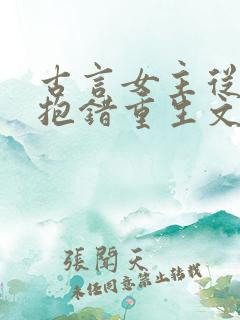 古言女主從
抱錯重生文
張聞天
未经同意禁止转载